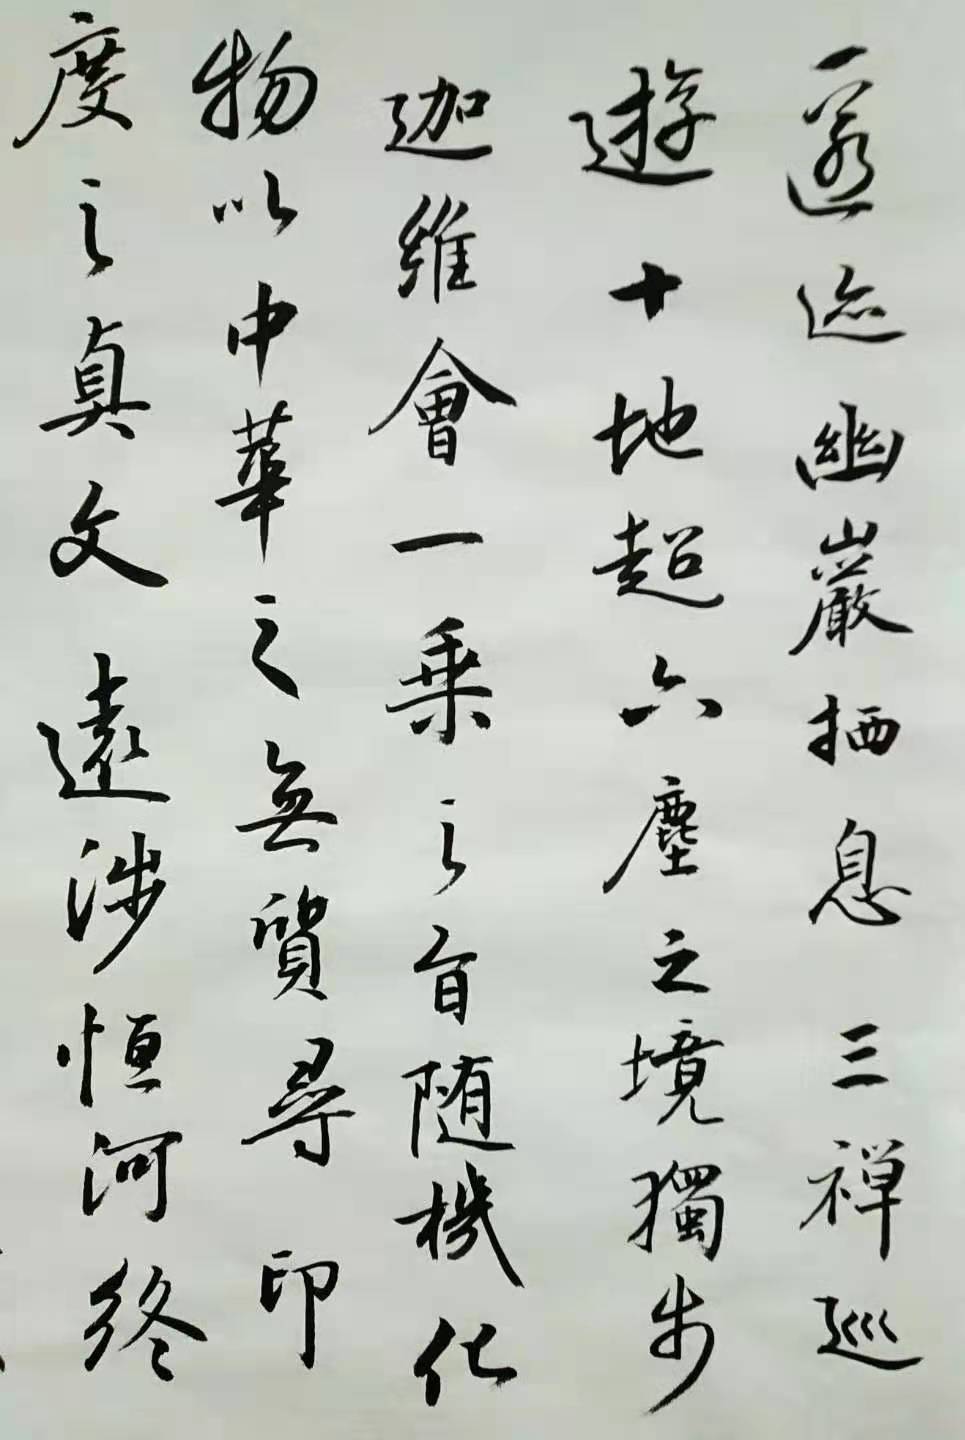 匿迹幽巖栖息三禅巡
遊十地超六塵之境獨步
迦維會一乗之旨随機化
物以中華之無質尋印
度之真文遠涉恒河終